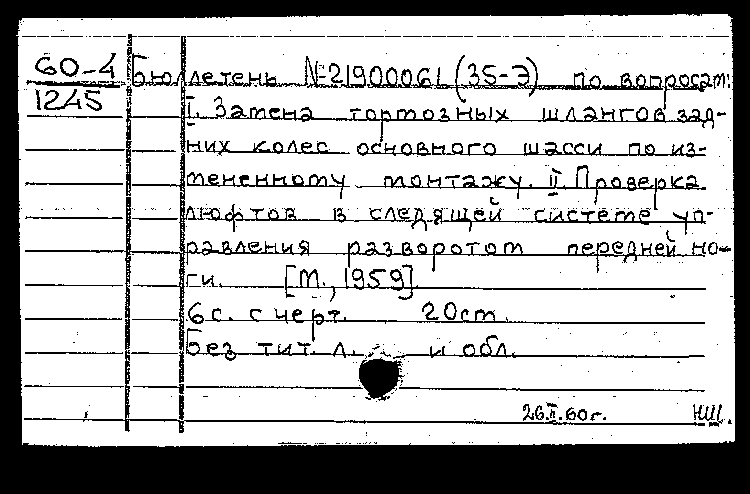 60-4
1245
Бюллетень №2190006L (35-Э) по вопросам:
I. Замена тормозных шлангов зад-
них колес основного шасси по из-
мененному монтажу. II. Проверка
люфтов в следящей системе уп-
равления разворотом передней но-
ги. [М., 1959]
6 с. с черт. 20 см.
Без тит. л. и обл.
26.II.60г. НШ.